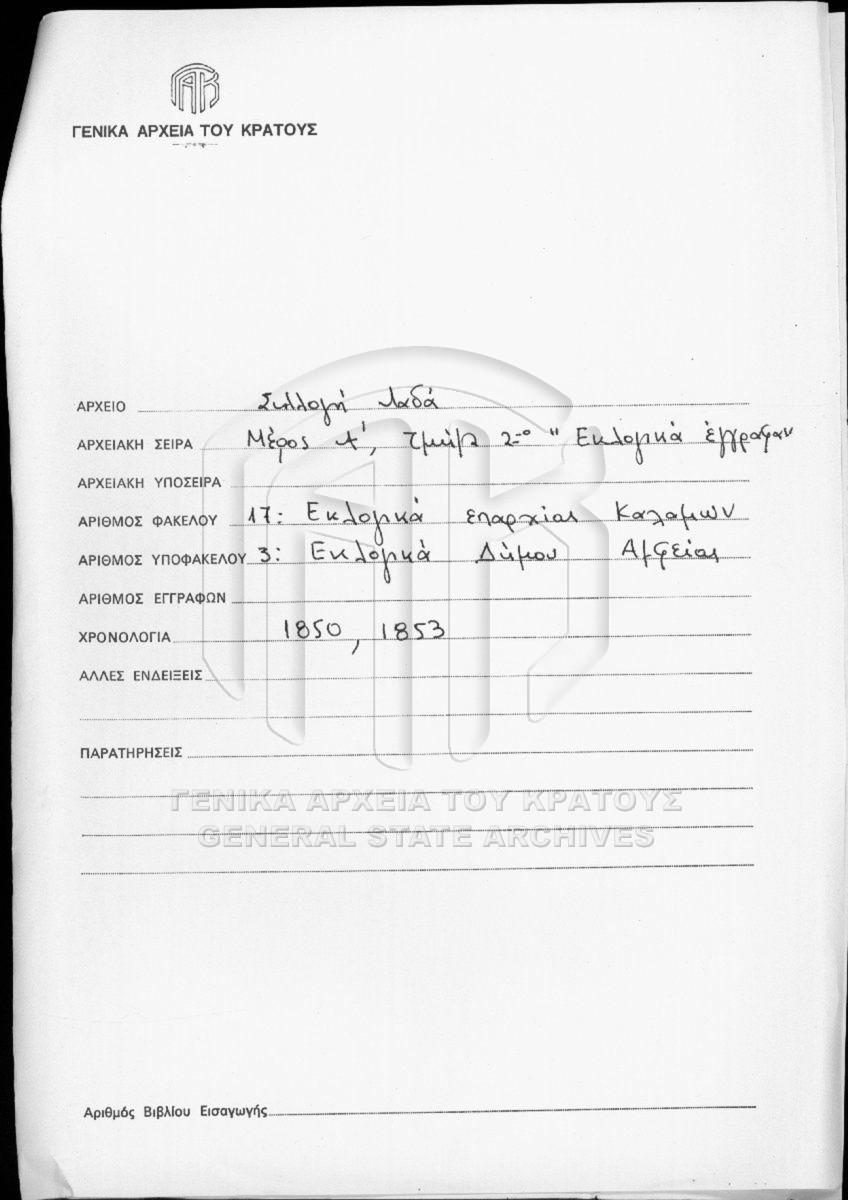 ΓΑΚ
ΓΕΝΙΚΑ ΑΡΧΕΙΑ ΤΟΥ ΚΡΑΤΟΥΣ
ΑΡΧΕΙΟ Συλλογή Λαδά
ΑΡΧΕΙΑΚΗ ΣΕΙΡΑ Μέρος Α', τμήμα 2-ο " Εκλογικά έγγραφα"
ΑΡΧΕΙΑΚΗ ΥΠΟΣΕΙΡΑ
ΑΡΙΘΜΟΣ ΦΑΚΕΛΟΥ 17: Εκλογικά επαρχίας Καλαμών
ΑΡΙΘΜΟΣ ΥΠΟΦΑΚΕΛΟΥ 3: Εκλογικά Δήμου Αμφείας
ΑΡΙΘΜΟΣ ΕΓΓΡΑΦΩΝ
ΧΡΟΝΟΛΟΓΙΑ 1850, 1853
ΑΛΛΕΣ ΕΝΔΕΙΞΕΙΣ
ΠΑΡΑΤΗΡΗΣΕΙΣ
ΓΕΝΙΚΑ ΑΡΧΕΙΑ ΤΟΥ ΚΡΑΤΟΥΣ
GENERAL STATE ARCHIVES
Αριθμός Βιβλίου Εισαγωγής